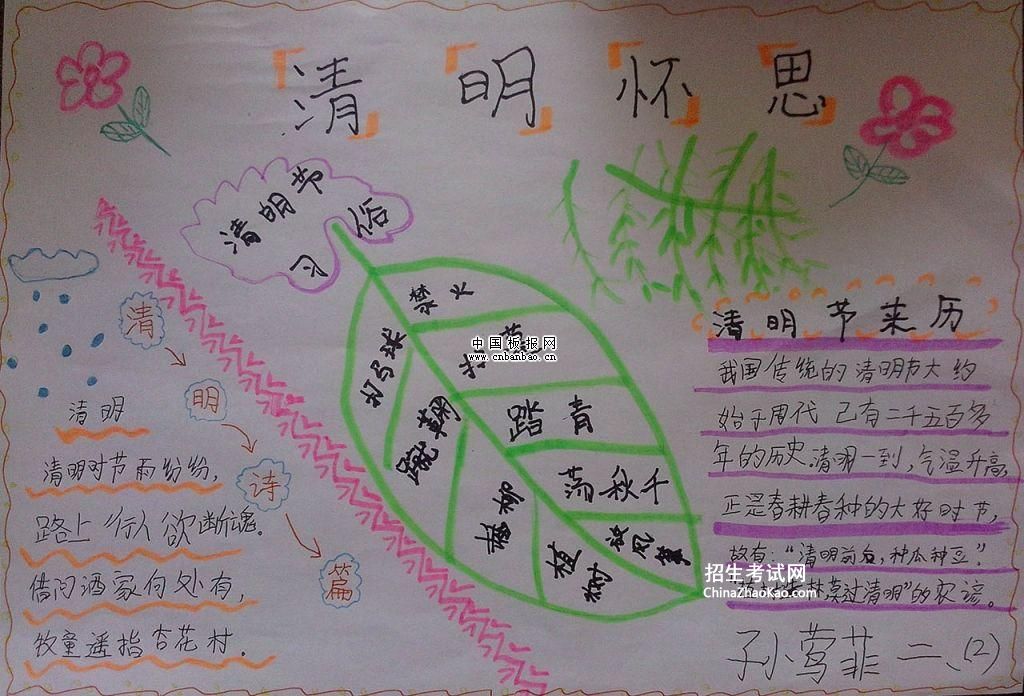 清明怀思
清明节
习俗
禁火
扫墓
踏青
荡秋千
放风筝
打马球
蹴鞠
插柳
植树
清
明
诗
篇
清明
清明时节雨纷纷，
路上行人欲断魂。
借问酒家何处有，
牧童遥指杏花村．
清明节来历
我国传统的清明节大约
始于周代 已有二千五百多
年的历史．清明一到，气温升高，
正是春耕春种的大好时节，
故有：“清明前后，种瓜种豆”
过清明”的农谚。
孙莺菲 二、(2)
中国板报网
www.cnbanbao.cn
招生考试网
ChinaZhaoKao.com